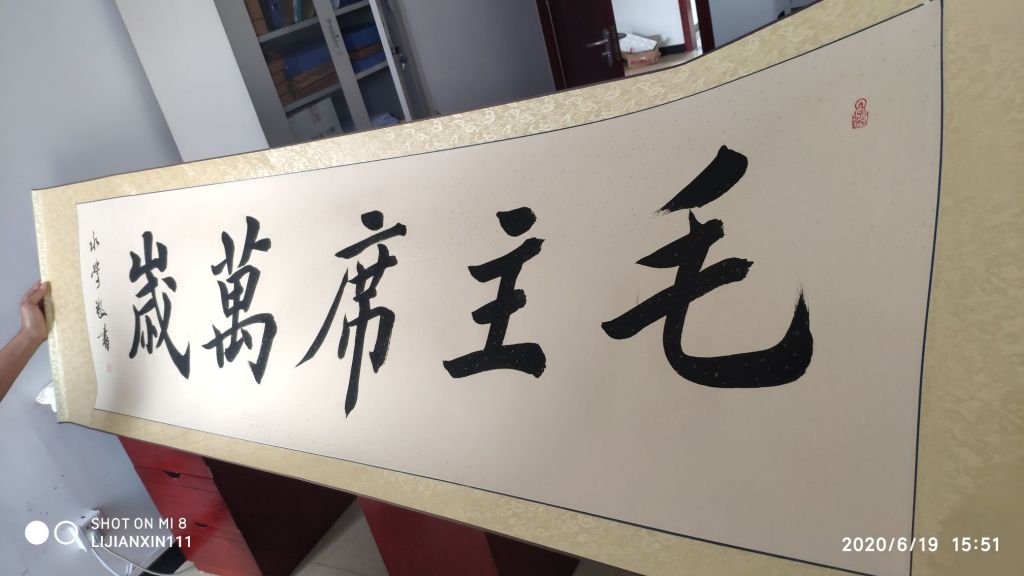 毛主席萬歲
SHOT ON MI 8
LIJIANXIN111
2020/6/19 15:51